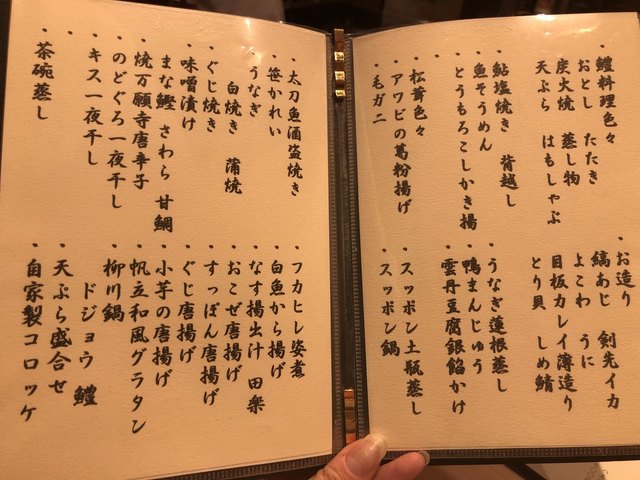 ・鱧料理色々
おとし たたき
炭火焼 蒸し物
天ぷら はもしゃぶ
・鮎塩焼き 背越し
・魚そうめん
・とうもろこしかき揚
・松茸色々
・アワビの葛粉揚げ
・毛ガニ
・お造り
縞あじ 剣先イカ
よこわ うに
目板カレイ薄造り
とり貝 しめ鯖
・うなぎ蓮根蒸し
・鴨まんじゅう
・雲丹豆腐銀餡かけ
・スッポン土瓶蒸し
・スッポン鍋
・太刀魚酒盗焼き
・笹かれい
・うなぎ
白焼き 蒲焼
・ぐじ焼き
・味噌漬け
まな鰹 さわら 甘鯛
・焼万願寺唐辛子
・のどぐろ一夜干し
・キス一夜干し
・茶碗蒸し
・フカヒレ姿煮
・白魚から揚げ
・なす揚出汁 田楽
・おこぜ唐揚げ
・すっぽん唐揚げ
・ぐじ唐揚げ
・小芋の唐揚げ
・帆立和風グラタン
・柳川鍋
ドジョウ 鱧
・天ぷら盛合せ
・自家製コロッケ